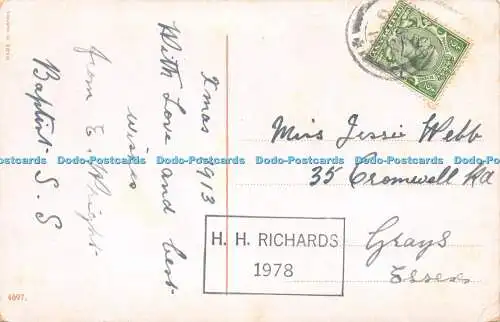 Xmas 1913
With Love and best
wishes
from E. Wright
Baptist S. S
Miss Jessie Webb
35 Cromwell Rd
Grays
Essex
H. H. RICHARDS
1978
4897.
Dodo-Postcards Dodo-Postcards Dodo-Postcards Dodo-Postcards Dodo-Postcards